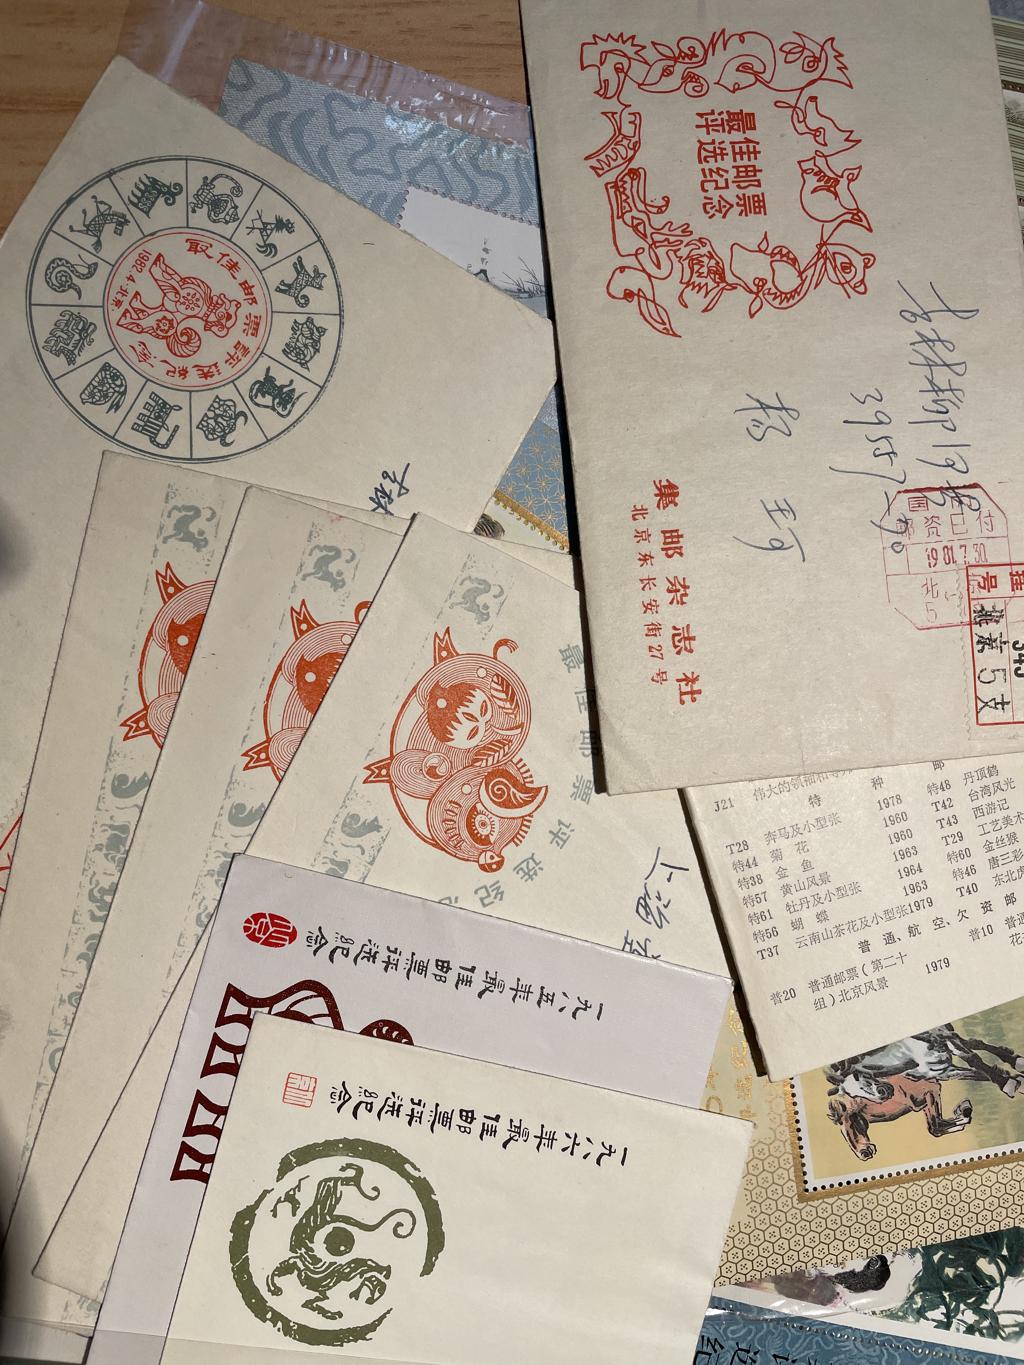 最佳邮票
评选纪念
吉林柳河县
39557-90
杨
集邮杂志社
北京东长安街27号
国
邮资已付
1981.7.30
北
5
挂
号
北京
5支
343
最佳邮票评选纪念
1982.4·北京
吉林
最佳邮票评选纪
上海
一九八五年最佳邮票评选纪念
一九八六年最佳邮票评选纪念
J21 伟大的领袖和导
特 种 邮
T28 奔马及小型张 1978
特44 菊 花 1960
特38 金 鱼 1960
特57 黄山风景 1963
特61 牡丹及小型张 1964
特56 蝴 蝶 1963
T37 云南山茶花及小型张1979
特48 丹顶鹤
T42 台湾风光
T43 西游记
T29 工艺美术
特60 金丝猴
特46 唐三彩
T40 东北虎
普 通、航 空、欠 资 邮
普20 普通邮票(第二十 1979
组)北京风景
特10 普通
花